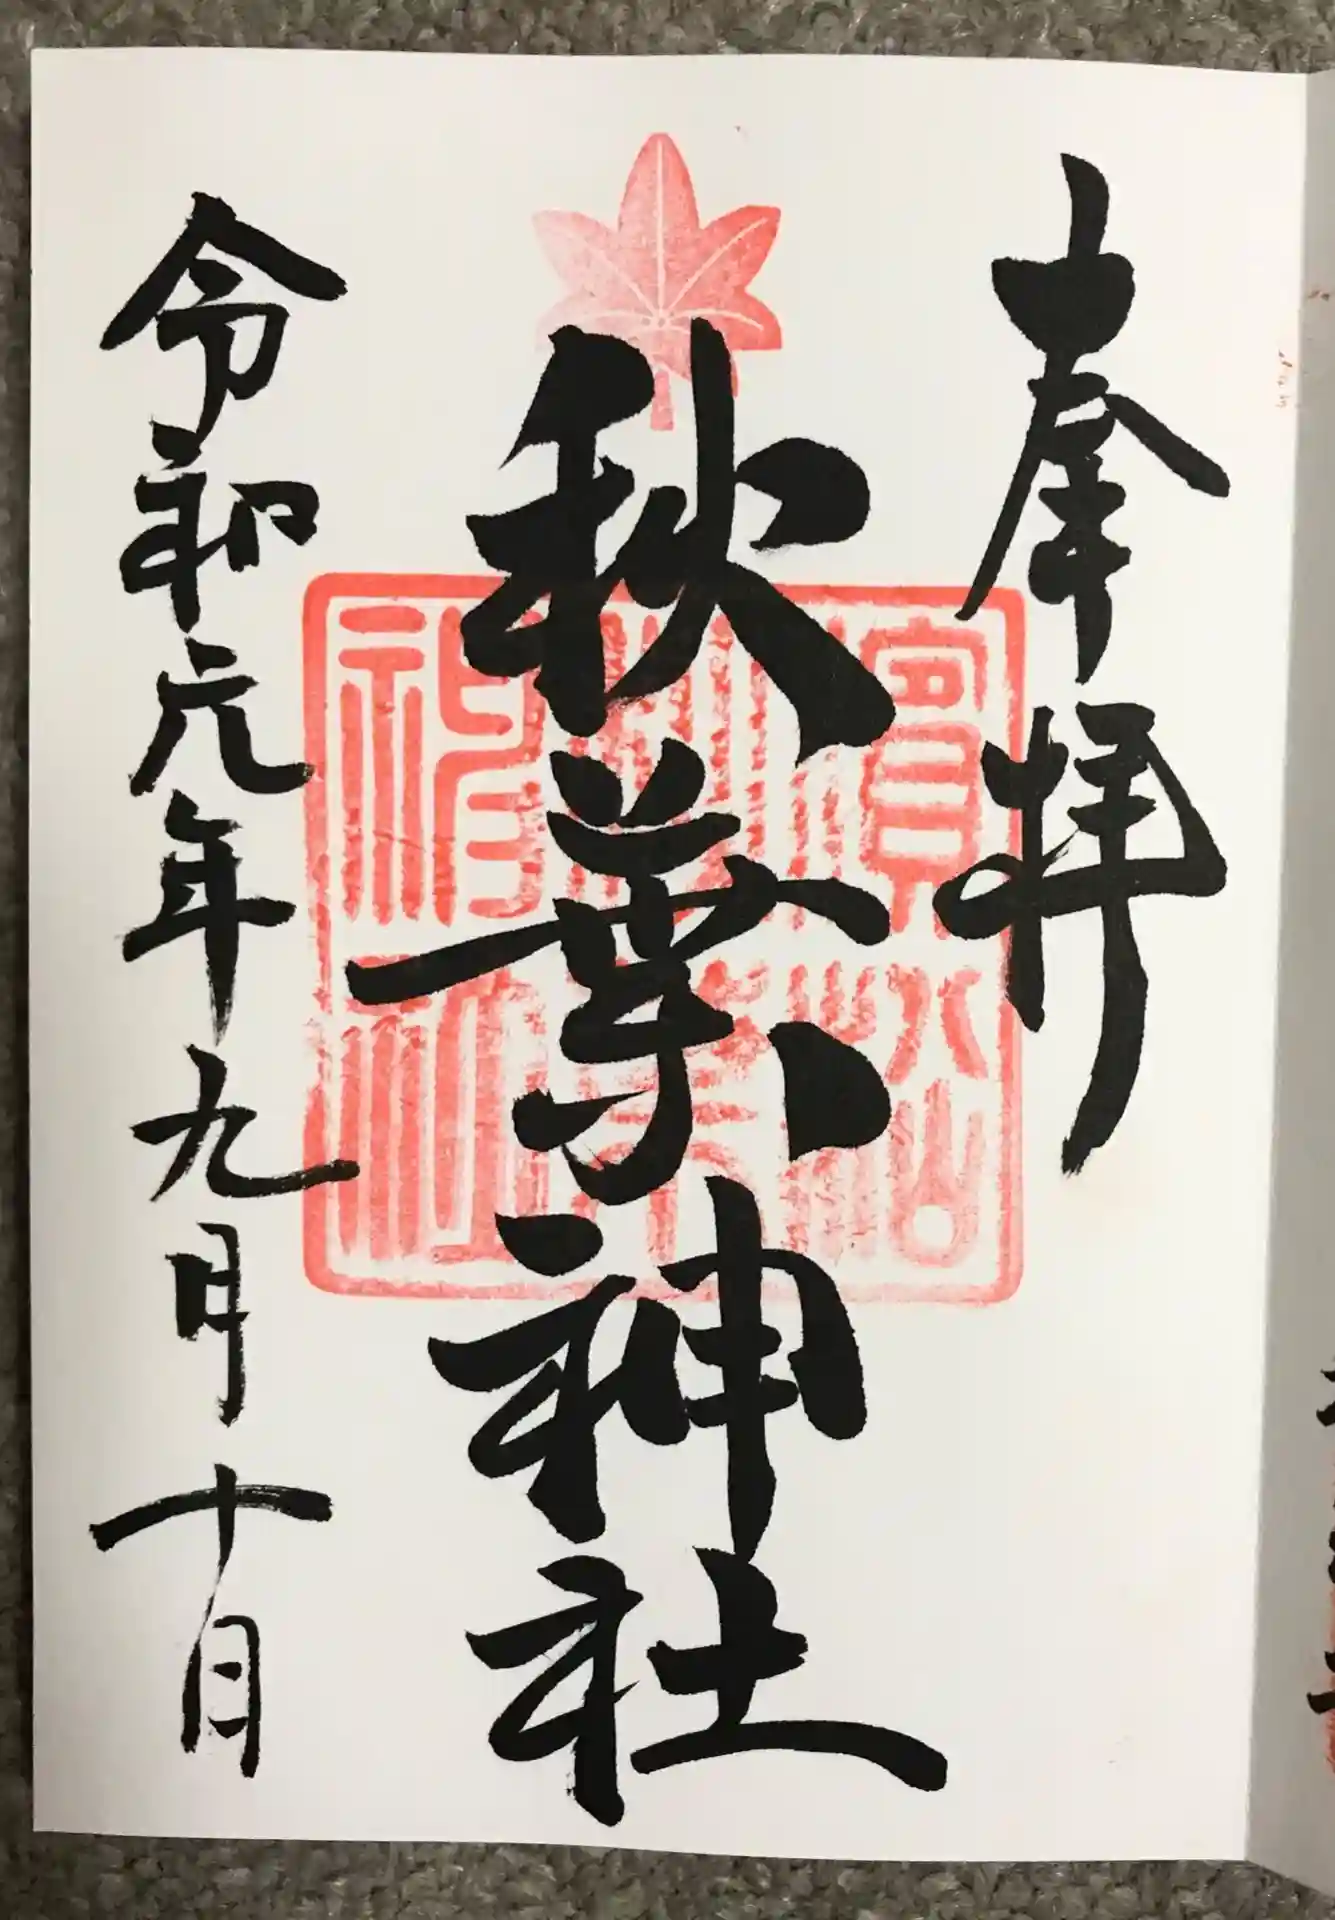 奉拝
秋葉神社
濱松
秋葉
神社
令和元年九月十日